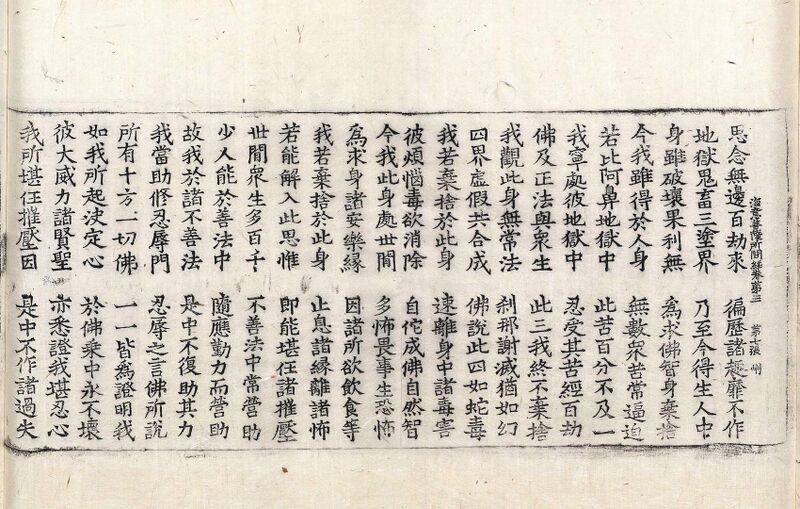 海意菩薩所問經卷第三 第七張 刑
思念無邊百劫來 徧歷諸趣靡不作
地獄鬼畜三塗界 乃至今得生人中
身雖破壞果利無 爲求佛智身棄捨
今我雖得於人身 無數衆苦常逼迫
若比阿鼻地獄中 此苦百分不及一
我寧處彼地獄中 忍受其苦經百劫
佛及正法與衆生 此三我終不棄捨
我觀此身無常法 刹那謝滅猶如幻
四界虛假共合成 佛說此四如蛇毒
我若棄捨於此身 速離身中諸毒害
彼煩惱毒欲消除 自佗成佛自然智
今我此身處世間 多怖畏事生恐怖
爲求身諸安樂緣 因諸所欲飲食等
我若棄捨於此身 止息諸緣離諸怖
若能解入此思惟 即能堪任諸摧壓
世間衆生多百千 不善法中常營助
少人能於善法中 隨應勤力而營助
故我於諸不善法 是中不復助其力
我當助修忍辱門 忍辱之言佛所說
所有十方一切佛 一一皆爲證明我
如我所起決定心 於佛乘中永不壞
彼大威力諸賢聖 亦悉證我堪忍心
我所堪任摧壓因 是中不作諸過失